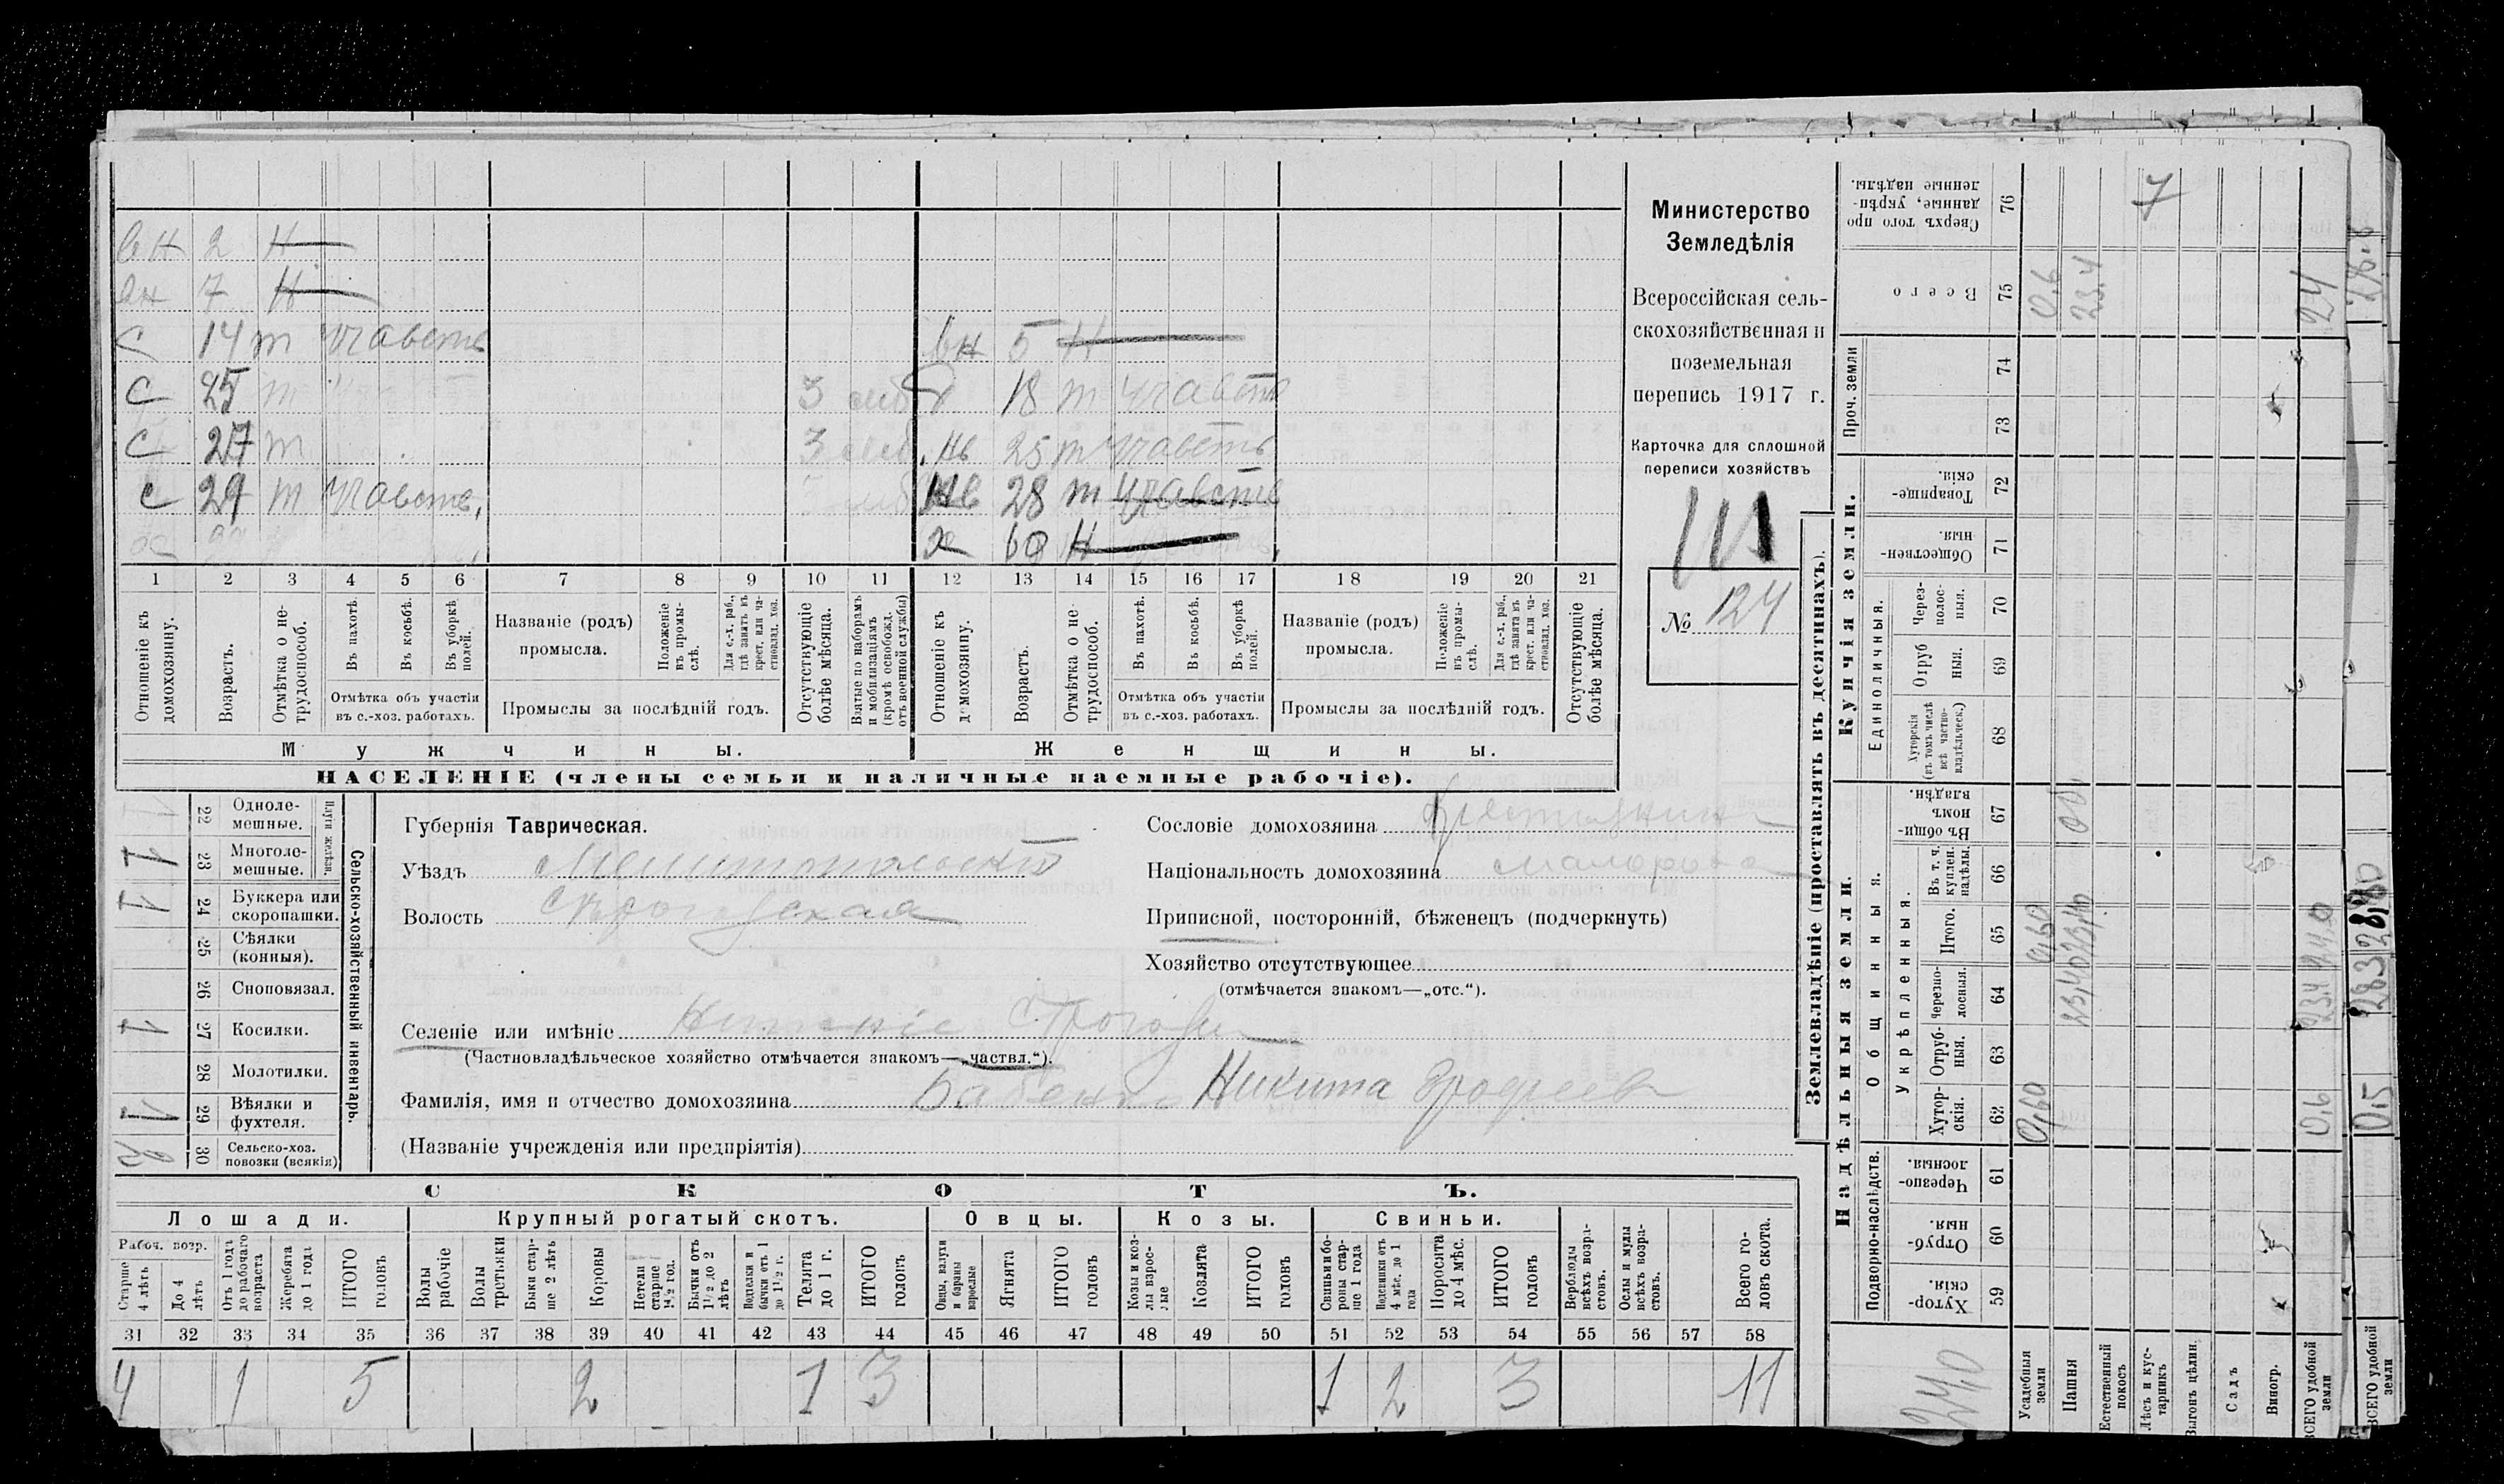 вн 2 н
вн 7 н
с 14 т участв
с 25 т
с 27 т
с 29 т участв.
вн 5 н
18 т участв
нв 25 т участв
нв 28 т участв
х 60 н
1 2 3 4 5 6 7 8 9 10 11 12 13 14 15 16 17 18 19 20 21
Отношеніе къ домохозяину.
Возрастъ.
Отмѣтка о нетрудоспособ.
Въ пахотѣ.
Въ косьбѣ.
Въ уборкѣ полей.
Отмѣтка объ участіи въ с.-хоз. работахъ.
Названіе (родъ) промысла.
Положеніе въ промыслѣ.
Для с.-х. раб., гдѣ занятъ въ крест. или частновлад. хоз.
Промыслы за послѣдній годъ.
Отсутствующіе болѣе мѣсяца.
Взятые по наборамъ и мобилизаціямъ (кромѣ освобожд. отъ военной службы)
Отношеніе къ домохозяину.
Возрастъ.
Отмѣтка о нетрудоспособ.
Въ пахотѣ.
Въ косьбѣ.
Въ уборкѣ полей.
Отмѣтка объ участіи въ с.-хоз. работахъ.
Названіе (родъ) промысла.
Положеніе въ промыслѣ.
Для с.-х. раб., гдѣ занята въ крест. или частновлад. хоз.
Промыслы за послѣдній годъ.
Отсутствующіе болѣе мѣсяца.
Мужчины.
Женщины.
НАСЕЛЕНІЕ (члены семьи и наличные наемные рабочіе).
Министерство
Земледѣлія
Всероссійская сель-
скохозяйственная и
поземельная
перепись 1917 г.
Карточка для сплошной
переписи хозяйствъ
№ 124
Сельско-хозяйственный инвентарь.
Плуги желѣзн.
22 Одноле-мешные.
23 Многоле-мешные. 1
24 Буккера или скоропашки. 1
25 Сѣялки (конныя).
26 Сноповязал.
27 Косилки. 1
28 Молотилки.
29 Вѣялки и фухтеля. 1
30 Сельско-хоз. повозки (всякія)
Губернія Таврическая.
Уѣздъ Мелитопольскій
Волость Строгановская
Селеніе или имѣніе
(Частновладѣльческое хозяйство отмѣчается знакомъ—„частвл.“).
Фамилія, имя и отчество домохозяина Бабенко Никита Ерофеев
(Названіе учрежденія или предпріятія)
Сословіе домохозяина крестьянинъ
Національность домохозяина малоросъ
Приписной, посторонній, бѣженецъ (подчеркнуть)
Хозяйство отсутствующее
(отмѣчается знакомъ—„отс.“).
СКОТЪ.
Лошади.
Крупный рогатый скотъ.
Овцы.
Козы.
Свиньи.
Рабоч. возр.
Старше 4 лѣтъ
До 4 лѣтъ
Отъ 1 года до рабочаго возраста
Жеребята до 1 года
ИТОГО головъ
Волы рабочіе
Волы третьяки
Быки старше 2 лѣтъ
Коровы
Нетели старше 1½ год.
Бычки отъ 1½ до 2 лѣтъ
Водѣлки и бычки отъ 1 до 1½ г.
Телята до 1 г.
ИТОГО головъ
Овцы, валухи и бараны взрослые
Ягнята
ИТОГО головъ
Козы и козлы взрослые
Козлята
ИТОГО головъ
Свиньи и боровы старше 1 года
Подсвинки отъ 4 мѣс. до 1 года
Поросята до 4 мѣс.
ИТОГО головъ
Верблюды всѣхъ возрастовъ.
Ослы и мулы всѣхъ возрастовъ.
Всего головъ скота.
31 32 33 34 35 36 37 38 39 40 41 42 43 44 45 46 47 48 49 50 51 52 53 54 55 56 57 58
4 1 5 2 1 3 1 2 3 11
Землевладѣніе (проставлять въ десятинахъ).
Надѣльныя земли.
Купчія земли.
Проч. земли
Подворно-наслѣдств.
Общинныя.
Укрѣпленныя.
Единоличныя.
Сверхъ того проданные, укрѣпленные надѣлы. 76
Всего 75
74
73
Товарищескія. 72
Общественныя. 71
Черезполосныя. 70
Отрубныя. 69
Хуторскія (въ томъ числѣ всѣ частновладѣльческ.) 68
Въ общинномъ владѣн. 67
Въ т. ч. куплен. надѣлы. 66
Итого. 65
Черезполосныя. 64
Отрубныя. 63
Хуторскія. 62
Черезполосныя. 61
Отрубныя. 60
Хуторскія. 59
Усадебныя земли
Пашня
Естественный покосъ
Лѣсъ и кустарникъ
Выгонъ цѣлин.
Садъ
Виногр.
ВСЕГО удобной земли
ВСЕГО удобной земли
7
0.6
23.4
24
0,60
0,60
24,0
0,6
0,5